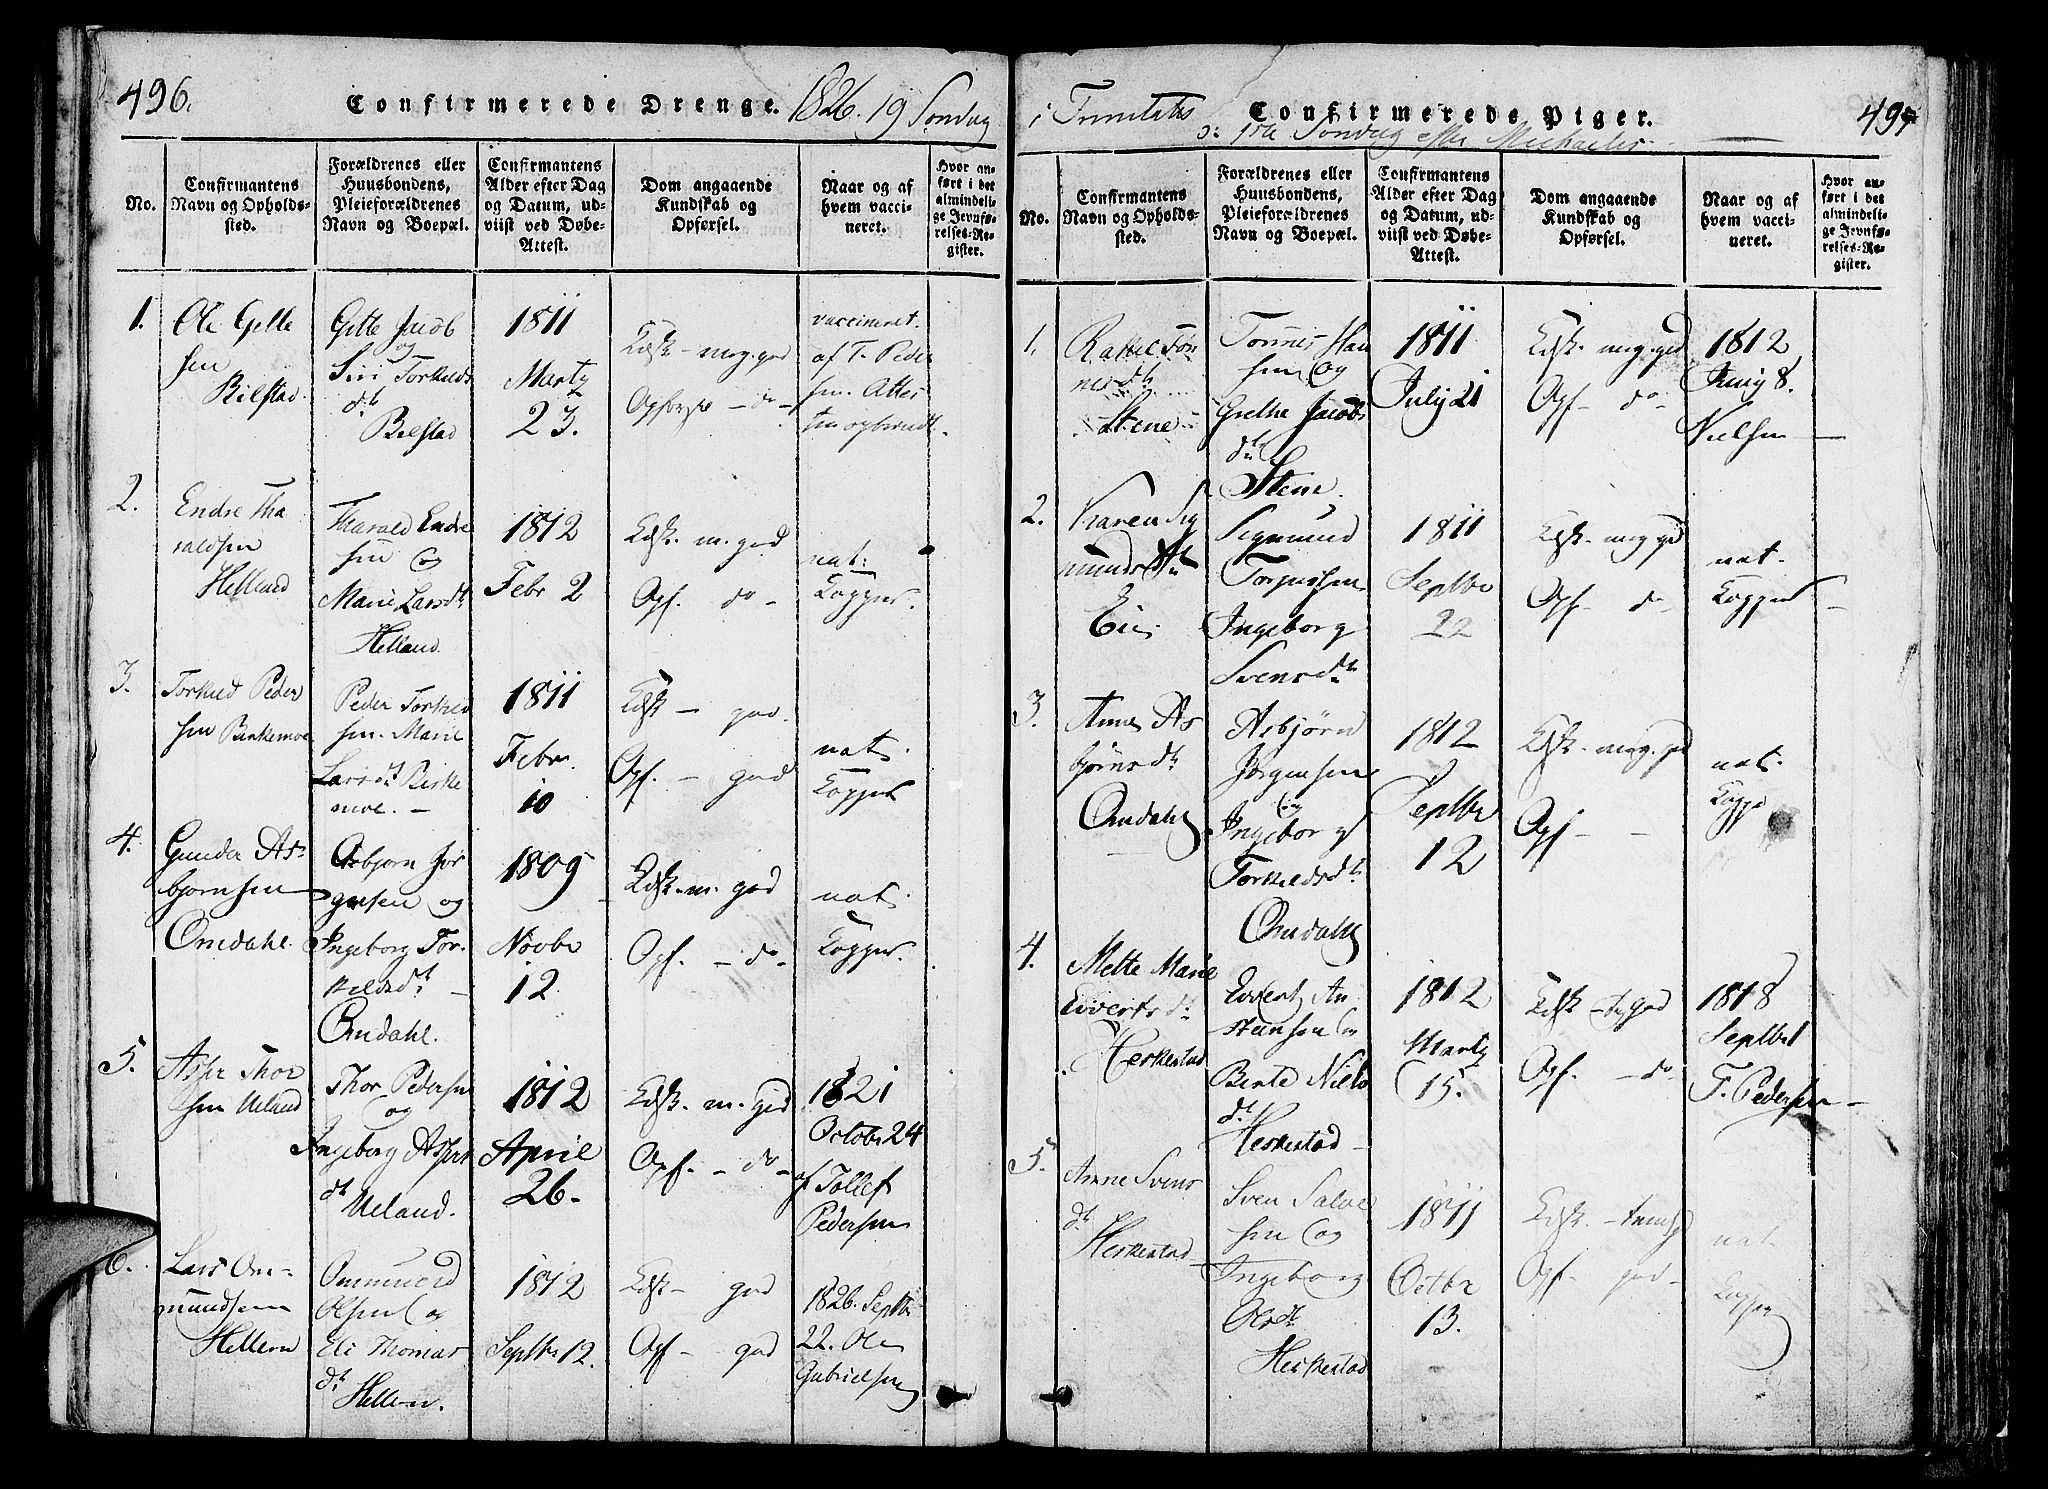 496.
Confirmerede Drenge. 1826. 19 Søndag
No.
Confirmantens Navn og Opholdssted.
Forældrenes eller Huusbondens, Pleieforældrenes Navn og Boepæl.
Confirmantens Alder efter Dag og Datum, udviist ved Døbe-Attest.
Dom angaaende Kundskab og Opførsel.
Naar og af hvem vaccineret.
Hvor anført i det almindelige Jevnførelses-Register.
1.
Ole Gitle
sen
Bilstad
Gitle Jacob
og
Siri Torkilds
dt
Bilstad
1811
Marty
23.
Kdsk - meg. god
Opførsel - do -
vaccineret
af T. Peder
sen. Attes
2.
Endre Tha
raldsen
Helland
Tharald Endre
sen og
Marie Larsdt
Helland
1812
Febr 2
Kdsk. m. god
Opf. do -
nat:
Kopper.
3.
Torkild Peder
sen Birkemoe
Peder Torkild
sen. Marie
Larsdt Birke
moe. -
1811
Febr.
10
Kdsk - god.
Opf. - god
nat.
Kopper
4.
Gunder As-
bjørnsen
Omdahl.
Asbjørn Jør
gensen og
Ingeborg Tor-
kildsdt -
Omdahl.
1809
Novbr
12
Kdsk. m. god
Opf. - do -
nat.
Kopper.
5.
Asper Thor
sen Ueland
Thor Pedersen
og
Ingeborg Aspers
dt Ueland.
1812
April
26-
Kdsk. m. god
Opf. - do -
1821
Octobr 24
af Tollef
Pedersen
6.
Lars Om-
mundsen
Helleren
Ommund
Olsen og
Eli Thomas
dt Helleren.
1812
Septbr 12.
Kdsk - god
Opf - god
1826. Septbr
22. Ole
Gabrielsen
i Trinitatis
Confirmerede Piger.
497
ɔ: 1ste Søndag efter Michaelis
No.
Confirmantens Navn og Opholdssted.
Forældrenes eller Huusbondens, Pleieforældrenes Navn og Boepæl.
Confirmantens Alder efter Dag og Datum, udviist ved Døbe-Attest.
Dom angaaende Kundskab og Opførsel.
Naar og af hvem vaccineret.
Hvor anført i det almindelige Jevnførelses-Register.
1.
Rakel Tøn
nesdt
Stene
Tønnes Han
sen og
Grethe Jacobs
dt
Stene.
1811
July 21
Kdsk. meg. god
Opf - do -
1812
Juny 8.
Nielsen
2.
Karen Sig
mundsdt
Eie
Sigmund
Torgussen
Ingeborg
Svensdt
1811
Septbr
22
Kdsk - meg god
Opf - do
nat.
Kopper -
3.
Anne As
bjørnsdt
Omdahl
Asbjørn
Jørgensen
og
Ingeborg
Torkildsdt
Omdahl
1812
Septbr
12
Kdsk - meg. god
Opf - -
nat.
Koppe
4.
Mette Marie
Eivertsdt
Herkestad
Eivert An
stensen og
Berte Niels
dt
Herkestad -
1812
Marty
15.
Opf. - do
1818
Septbr 1
T. Pedersen -
5.
Anne Svens
dt
Herkestad
Sven Salve
sen og
Ingeborg
Olsdt
Herkestad
1811
Octbr
13.
Opf - god -
nat.